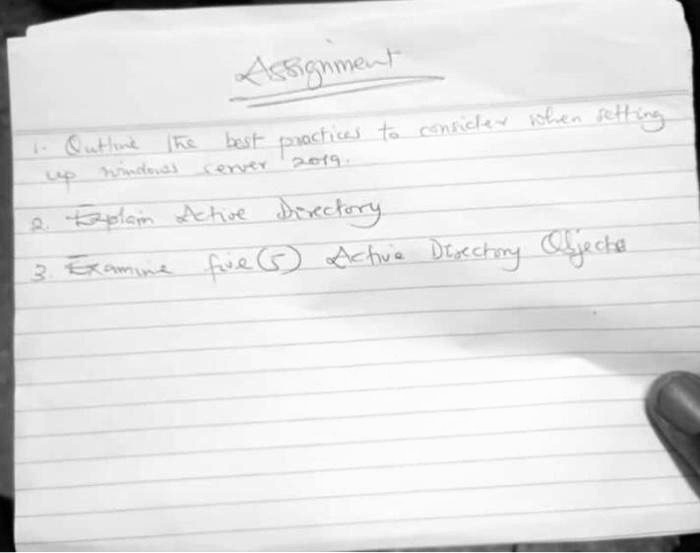 Assignment
1. Outline the best practices to consider when setting
up windows server 2019.
2. Explain Active Directory
3. Examine five (5) Active Directory Objects